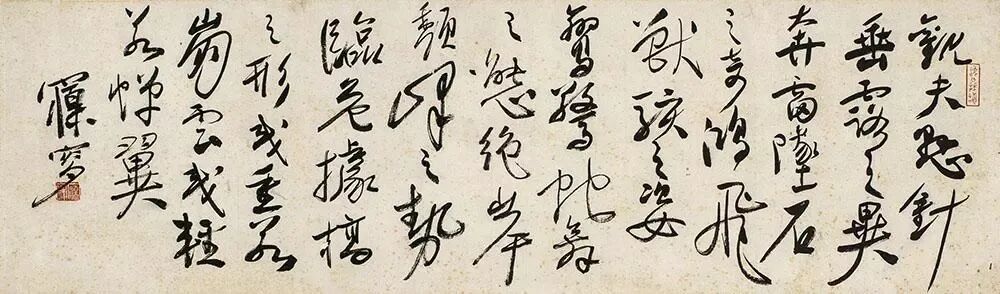 觀夫懸針
垂露之異
奔雷墜石
之奇鴻飛
獸駭之姿
鸞驚蛇舞
之態絕岸
頹峰之勢
臨危據槁
之形或重若
崩雲或輕
若蟬翼
寫